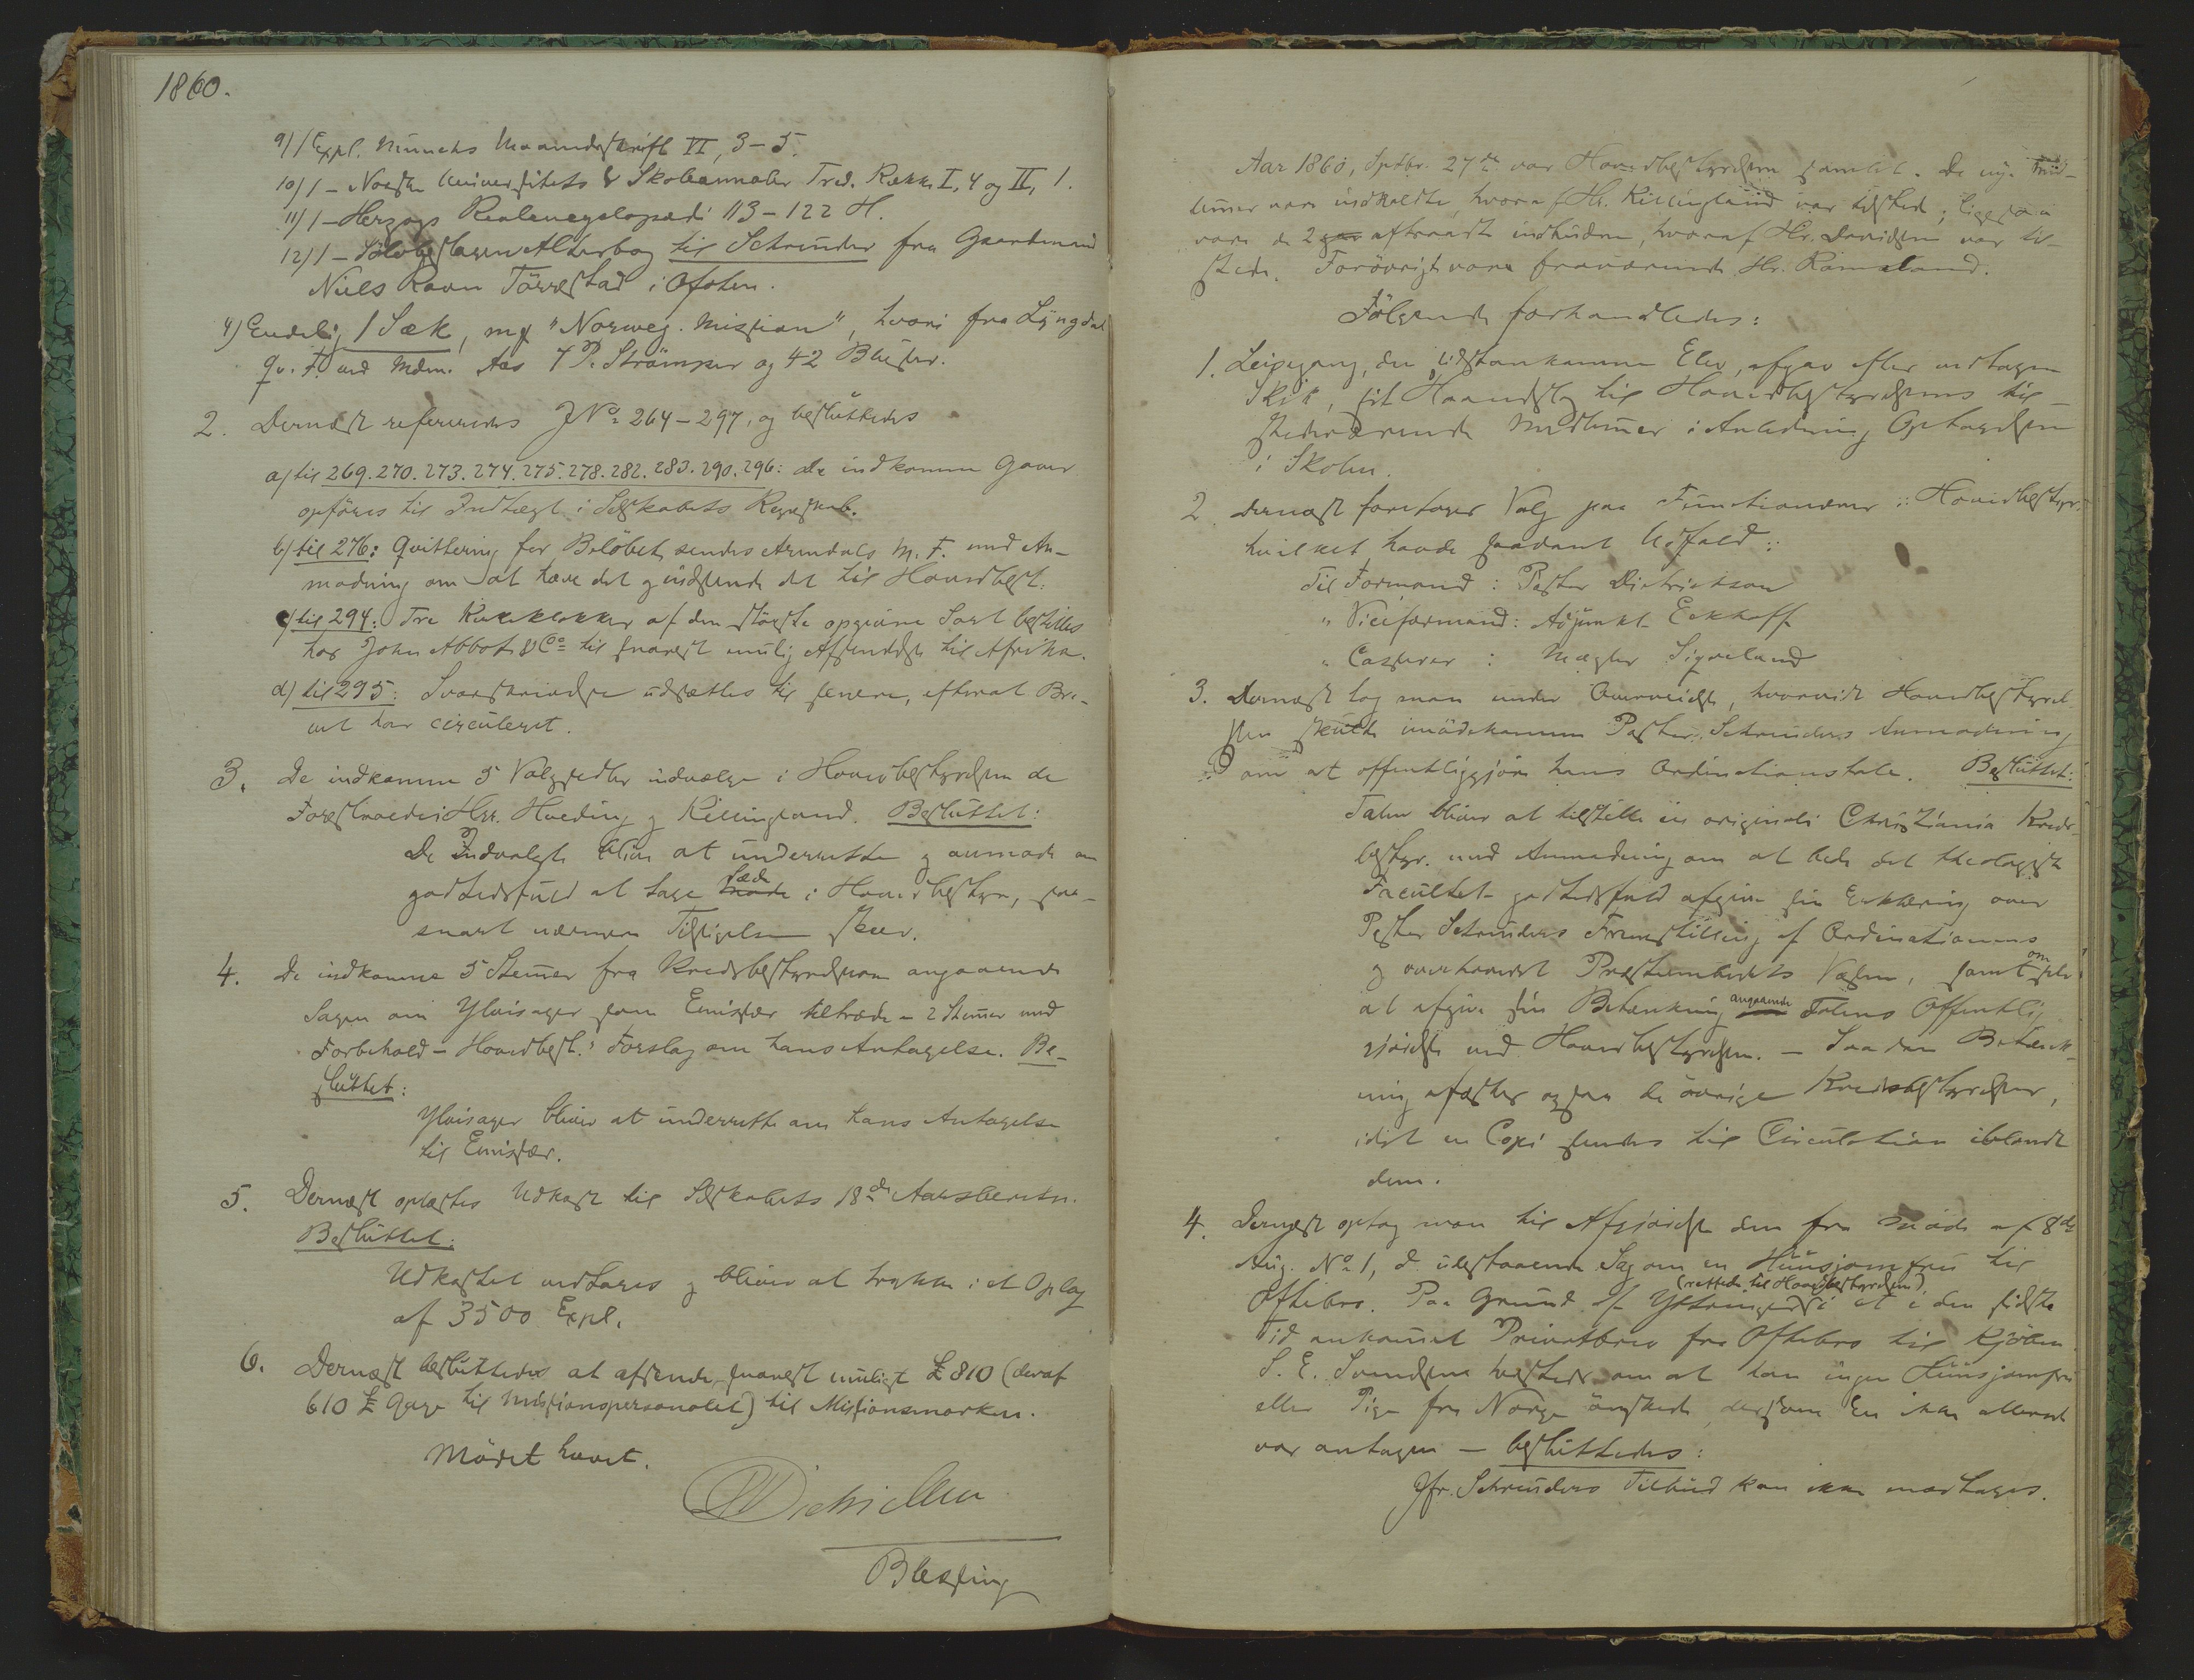 1860.
9) 1 Expl. Munchs Maanedsskrift VI, 3-5.
10) 1 - Norske Universitets & Skoleannaler Tred. Række I, 4 og II, 1.
11) 1 - Herzogs Realencyclopædi 113-122 H.
12) 1 - Alterbog til Schreuder fra Gaardmand
Niels Ravn Törrestad i Ofoten.
4) Endelig 1 Sæk, mrk "Norweg. Mission", hvori fra Lyngdal
Qv. F. ved Mdm. Aas 7 P. Strömper og 42 Bluser.
2. Dernæst refereredes J No 264-297, og besluttedes
a) til 269. 270. 273. 274. 275. 278. 282. 283. 290. 296: De indkomne Gaver
opföres til Indtægt i Selskabets Regnskab.
b) til 276: Qvittering for Belöbet sendes Arendals M. F. med An-
modning om at hæve det og indsende det til Hovedbest:
c) til 294: Tre Kirkeklokker af den störste opgivne Sort bestilles
hos John Abbot & Co til snarest mulig Afsendelse til Afrika.
d) til 295: Svarskrivelse udsættes til senere, efterat Bre-
vet har circuleret.
3. De indkomne 5 Valgsedler udvælge i Hovedbestyrelsen de
Hrr. Hæding og Killingland. Besluttet:
De Indvalgte bliver at underrette og anmode om
godhedsfuld at tage Sæde i Hovedbestyr, saa-
snart nærmere Tilsigelse skeer.
4. De indkomne 5 Stemmer fra Kredsbestyrelserne angaaende
Sagen om Ylvisager som Emissær tiltræde - 2 Stemmer med
Forbehold - Hovedbest.s Forslag om hans Antagelse. Be-
sluttet:
Ylvisager bliver at underrette om hans Antagelse
til Emissær.
5. Dernæst oplæstes Udkast til Selskabets 18de Aarsberetn.
Besluttet:
Udkastet vedtages og bliver at trykke i et Oplag
af 3500 Expl.
6. Dernæst besluttedes at afsende snarest muligt £ 810 (deraf
610 £ Gage til Missionspersonalet) til Missionsmarken.
Mödet hævet.
Dietrichson
Blessing
Aar 1860, Septbr. 27de var Hovedbestyrelsen samlet. De nye Med-
lemmer vare indkaldte, hvoraf Hr. Killingland var tilstede; ligesaa
vare de 2 aftraadte indbudne, hvoraf Hr. Davidsen var til-
stede. Forövrigt vare fraværende Hr. Rameland.
Fölgende forhandledes:
1. Leipegang, den sidstankomne Elev, afgav efter vedtagen
Skik, sit Haandslag til Hovedbestyrelsens til-
stedeværende Medlemmer i Anledning Optagelsen
i Skolen.
2. Dernæst foretoges Valg paa Functionærer i Hovedbestyr.
hvilket havde saadant Udfald:
Til Formand: Pastor Dietrichson
" Viceformand: Adjunkt Eckhoff
" Casserer: Mægler Sigveland
3. Dernæst tog man under Overveielse, hvorvidt Hovedbestyrel-
sen skulde imödekomme Pastor Schreuders Anmodning
om at offentliggjöre hans Ordinationstale. Besluttet:
Talen bliver at tilstille in originali Christiania Kreds-
bestyr. med Anmodning om at bede det theologiske
Facultet godhedsfuld afgive sin Erklæring over
Pastor Schreuders Fremstilling af Ordinationens
og overhovedet Præsteembedets Væsen, samt om selv
at afgive sin Betænkning angaaende Talens Offentlig-
gjörelse ved Hovedbestyrelsen. - Saadan Betænk-
ning afæskes ogsaa de övrige Kredsbestyrelser,
idet en Copi sendes til Circulation iblandt
dem.
4. Dernæst optog man til Afgjörelse den fra Möde af 8de
Aug. No 1, d. udestaaende Sag om en Huusjomfru til
Oftebro. Paa Grund af Yttringer i et i den sidste
(rettede til Hovedbestyrelsen)
Tid ankommet Privatbrev fra Oftebro til Kjöbm.
S. E. Svendsens om at han ingen Huusjomfru
eller Pige fra Norge önskede, dersom En ikke allerede
var antagen - besluttedes:
Jfr. Schreuders Tilbud kan ikke modtages.